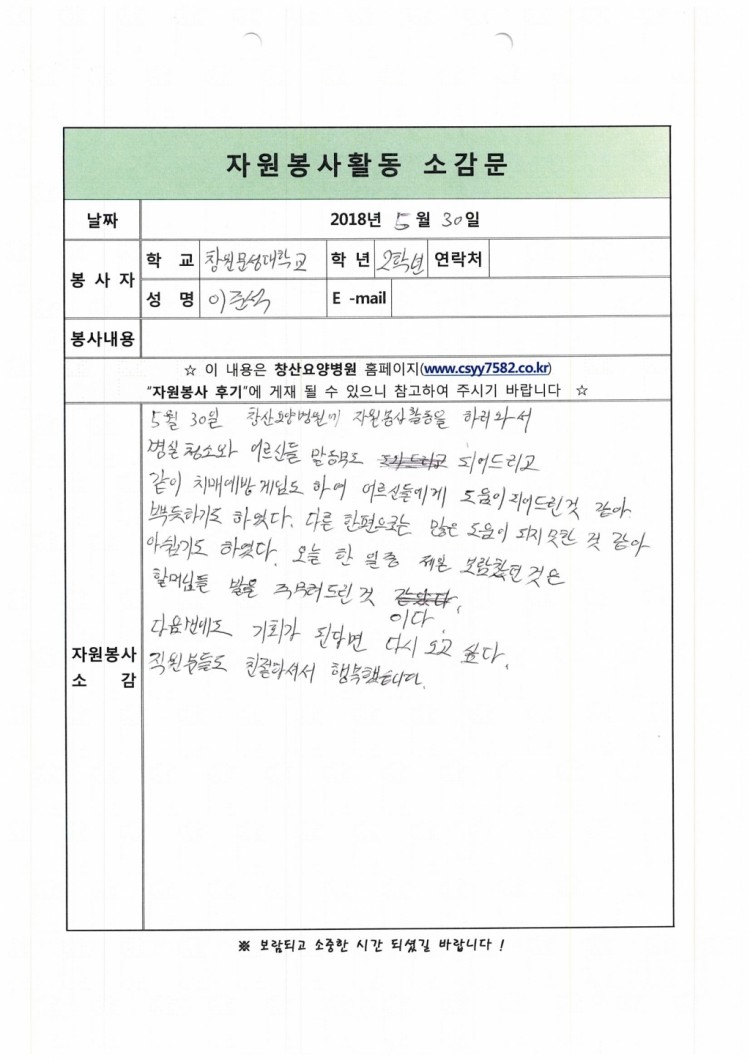 자원봉사활동 소감문
날짜 2018년 5월 30일
봉사자 학교 창원문성대학교 학년 2학년 연락처
성명 이준석 E-mail
봉사내용
☆ 이 내용은 창산요양병원 홈페이지(www.csyy7582.co.kr)
"자원봉사 후기"에 게재 될 수 있으니 참고하여 주시기 바랍니다 ☆
자원봉사
소감
5월 30일 창산요양병원에 자원봉사활동을 하러와서
병실청소와 어르신들 말동무도 되어드리고
같이 치매예방게임도 하여 어르신들에게 도움이 되어드린것 같아
뿌듯하기도 하였다. 다른 한편으로는 많은 도움이 되지 못한 것 같아
아쉽기도 하였다. 오늘 한 일중 제일 보람찼던 것은
할머님들 발을 주물러드린 것 같았다.
이다.
다음번에도 기회가 된다면 다시 오고 싶다.
직원분들도 친절하셔서 행복했습니다.
※ 보람되고 소중한 시간 되셨길 바랍니다 !